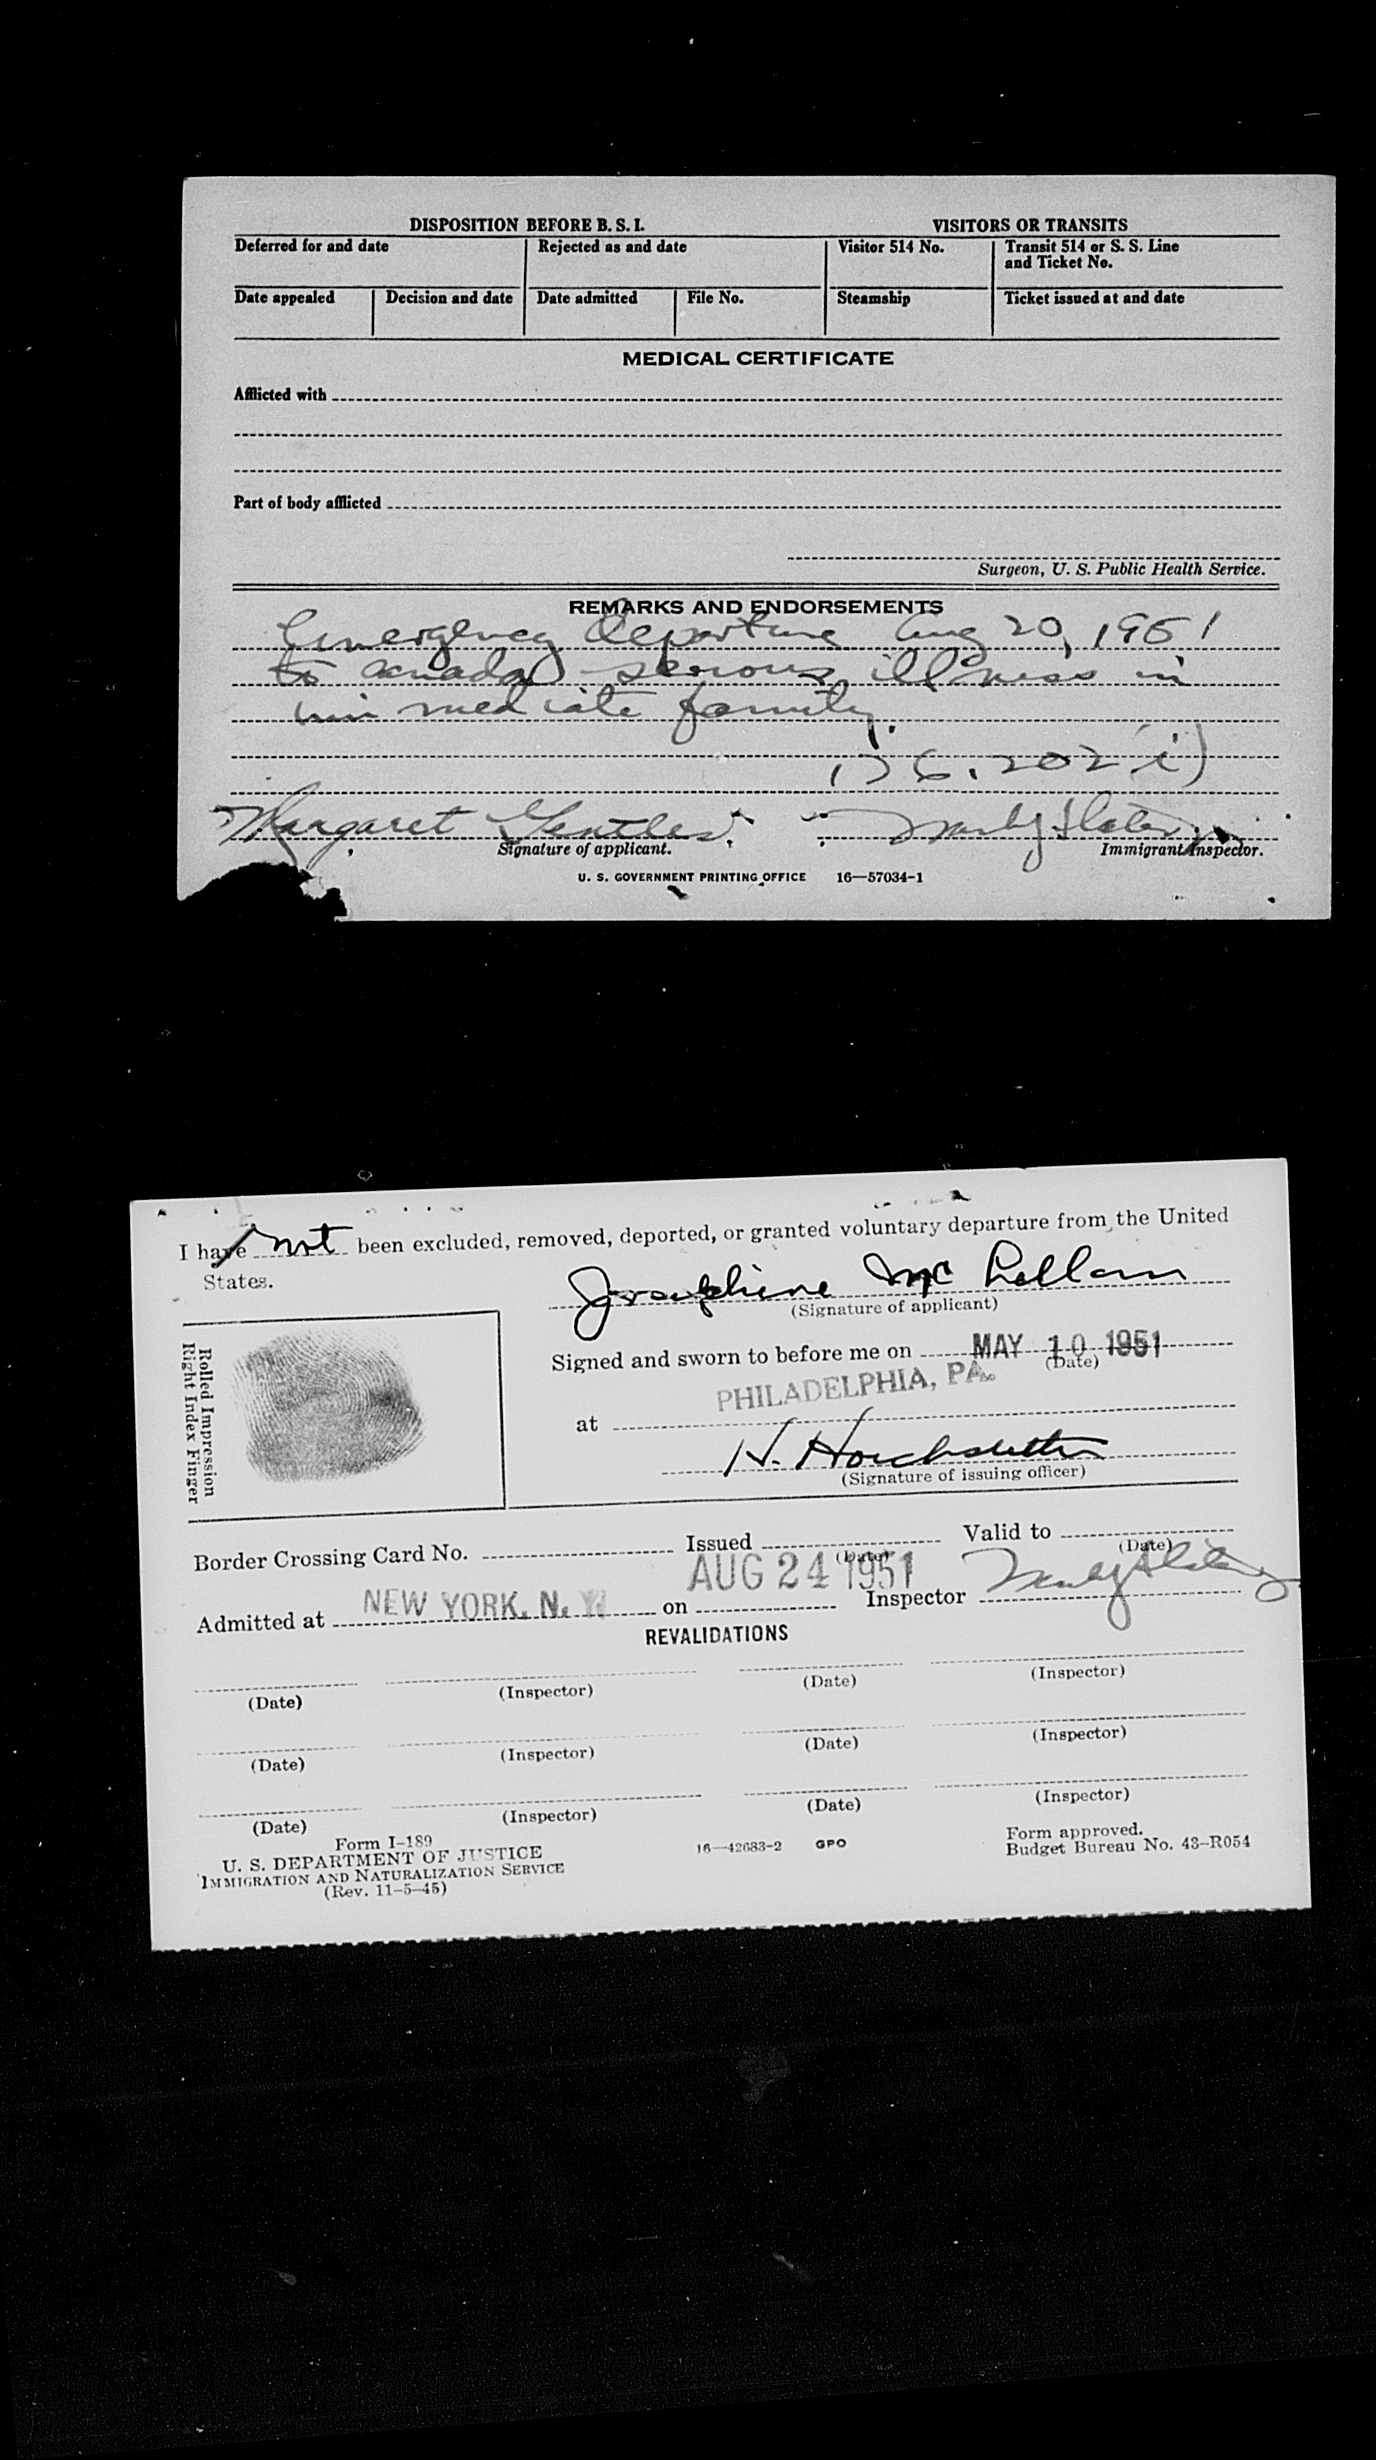 DISPOSITION BEFORE B. S. I. VISITORS OR TRANSITS
Deferred for and date Rejected as and date Visitor 514 No. Transit 514 or S. S. Line
and Ticket No.
Date appealed Decision and date Date admitted File No. Steamship Ticket issued at and date
MEDICAL CERTIFICATE
Afflicted with
Part of body afflicted
Surgeon, U. S. Public Health Service.
REMARKS AND ENDORSEMENTS
Emergency departure Aug 20, 1951
to Canada serious illness in
immediate family.
176.202 i)
Margaret Gentles
Signature of applicant. Immigrant Inspector.
U. S. GOVERNMENT PRINTING OFFICE 16—57034-1
I have not been excluded, removed, deported, or granted voluntary departure from the United
States.
Josephine Mc Lellan
(Signature of applicant)
Rolled Impression
Right Index Finger
Signed and sworn to before me on MAY 10 1951
(Date)
at PHILADELPHIA, PA.
H. Hochstetter
(Signature of issuing officer)
Border Crossing Card No. Issued Valid to
(Date) (Date)
Admitted at NEW YORK, N. Y. on AUG 24 1951 Inspector
REVALIDATIONS
(Date) (Inspector) (Date) (Inspector)
(Date) (Inspector) (Date) (Inspector)
(Date) (Inspector) (Date) (Inspector)
Form I-189
U. S. DEPARTMENT OF JUSTICE
IMMIGRATION AND NATURALIZATION SERVICE
(Rev. 11-5-45)
16—42683-2 GPO
Form approved.
Budget Bureau No. 43-R054